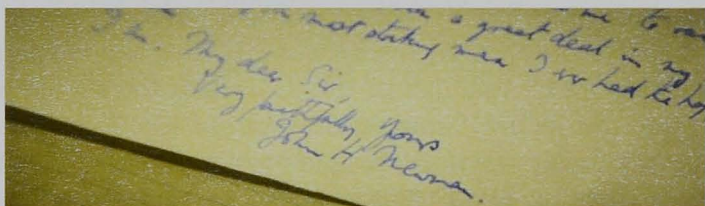 me to
a great deal in my
most striking men I ever had the
I am, My dear Sir,
Very faithfully Yours
John H Newman.